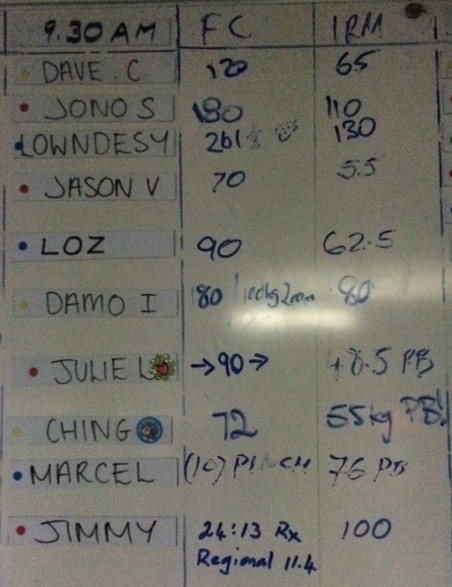 9.30AM FC 1RM
DAVE.C 120 65
JONO S 180 110
LOWNDESY 261 130
JASON V 70 55
LOZ 90 62.5
DAMO I 80 80
JULIE L →90→ 48.5 PB
CHING 72 55kg PB!
MARCEL (10) 76 PB
JIMMY 24:13 Rx 100
Regional 11.4